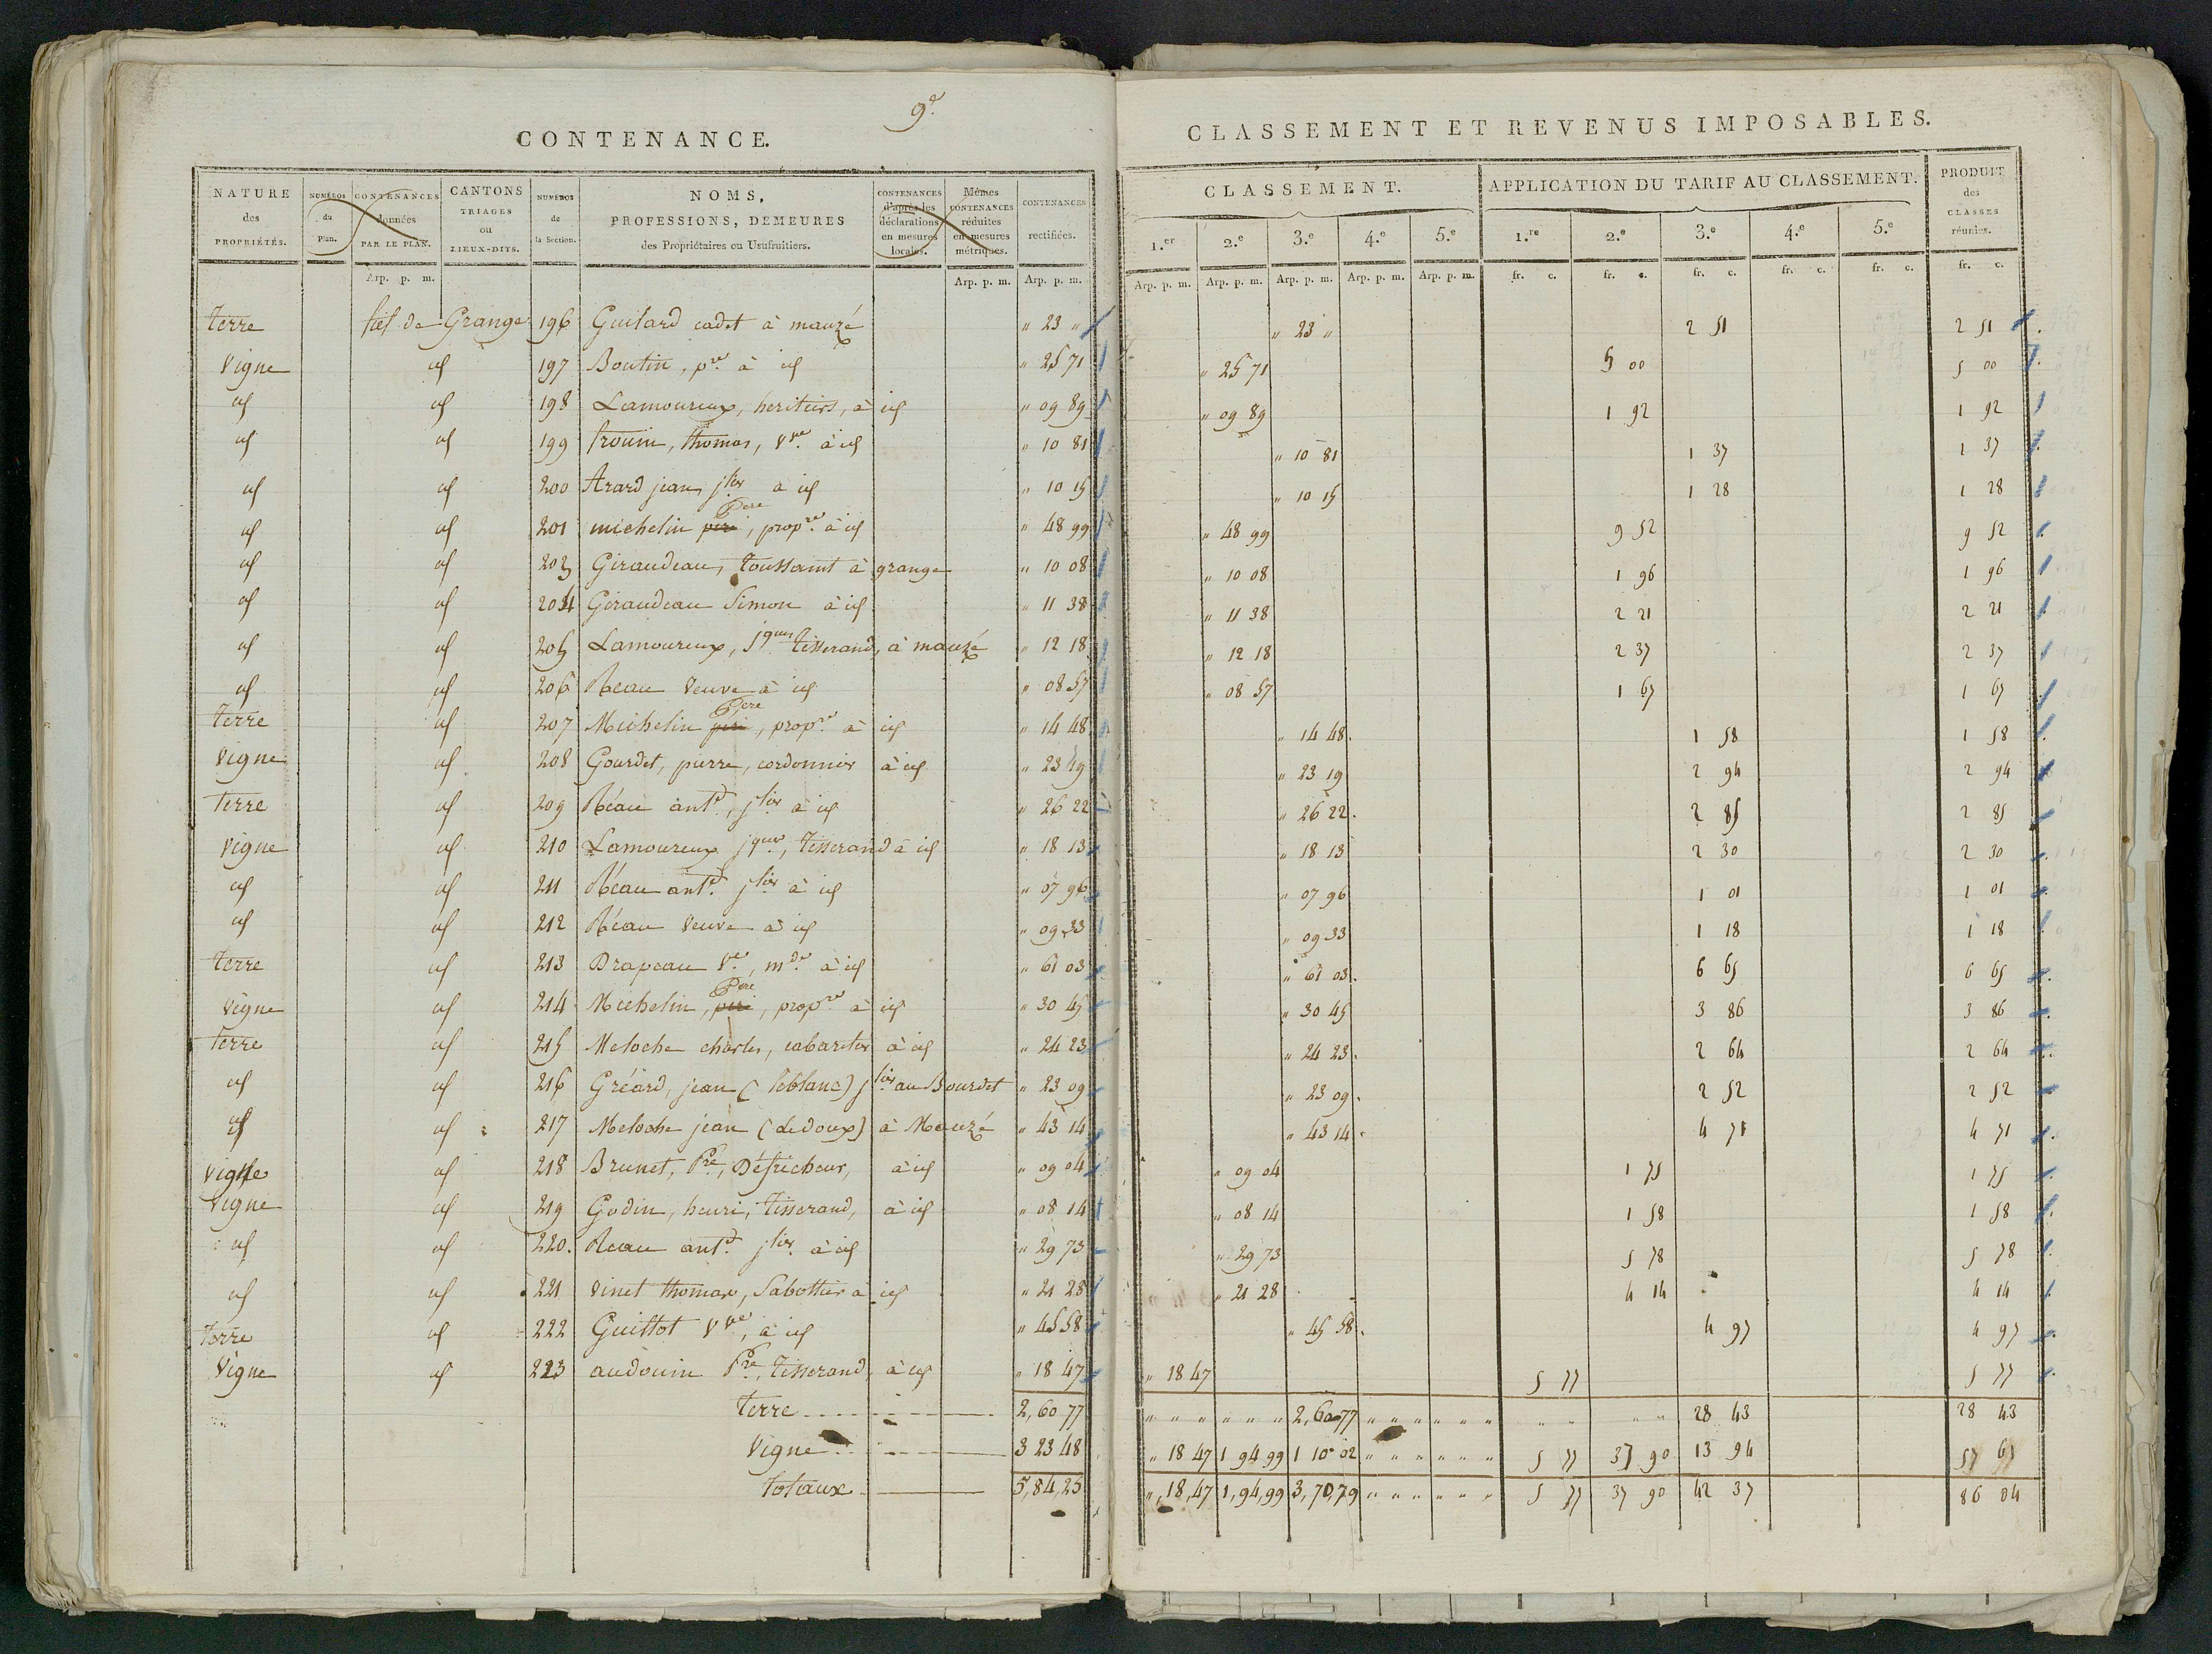 9e
CONTENANCE.
CLASSEMENT ET REVENUS IMPOSABLES.
NATURE des PROPRIÉTÉS. | NUMÉROS du Plan. | CONTENANCES données PAR LE PLAN. | CANTONS TRIAGES OU LIEUX-DITS. | NUMÉROS de la Section. | NOMS, PROFESSIONS, DEMEURES des Propriétaires ou Usufruitiers. | CONTENANCES d'après les déclarations en mesures locales. | Mêmes CONTENANCES réduites en mesures métriques. | CONTENANCES rectifiées. | CLASSEMENT. | APPLICATION DU TARIF AU CLASSEMENT. | PRODUIT des CLASSES réunies.
1.er 2.e 3.e 4.e 5.e 1.re 2.e 3.e 4.e 5.e
Arp. p. m. Arp. p. m. Arp. p. m. Arp. p. m. Arp. p. m. Arp. p. m. Arp. p. m. Arp. p. m. fr. c. fr. c. fr. c. fr. c. fr. c. fr. c.
terre fief de Grange 196 Guilard cadet à mauzé " 23 " " 23 " 2 51 2 51
Vigne id 197 Boutin, pre à id " 25 71 " 25 71 5 00 5 00
id id 198 Lamoureux, heritiers, à id " 09 89 " 09 89 1 92 1 92
id id 199 frouin, thomas, vve à id " 10 81 " 10 81 1 37 1 37
id id 200 Arard jean jlier à id " 10 15 " 10 15 1 28 1 28
id id 201 michelin Pere, propre à id " 48 99 " 48 99 9 52 9 52
id id 203 Giraudeau, toussaint à grange " 10 08 " 10 08 1 96 1 96
id id 204 Geraudeau Simon à id " 11 38 " 11 38 2 21 2 21
id id 205 Lamoureux, jques tisserand, à mauzé " 12 18 " 12 18 2 37 2 37
id id 206 Reau veuve à id " 08 57 " 08 57 1 67 1 67
terre id 207 Michelin Pere, propre à id " 14 48 " 14 48. 1 58 1 58
Vigne id 208 Gourdet, pierre, cordonnier à id " 23 19 " 23 19 2 94 2 94
terre id 209 Réau antd, jlier à id " 26 22 " 26 22. 2 85 2 85
vigne id 210 Lamoureux jques, tisserand à id " 18 13 " 18 13 2 30 2 30
id id 211 Réau antd jlier à id " 07 96 " 07 96 1 01 1 01
id id 212 Réau veuve à id " 09 33 " 09 33 1 18 1 18
terre id 213 Drapeau Ve, mde à id " 61 03 " 61 03. 6 65 6 65
vigne id 214 Michelin, Pere, propre à id " 30 45 " 30 45 3 86 3 86
terre id 215 Meloche charles, cabaretier à id " 24 23 " 24 23. 2 64 2 64
id id 216 Gréard, jean (leblanc) jlier au Bourdet " 23 09 " 23 09. 2 52 2 52
id id 217 Meloche jean (ledoux) à Mauzé " 43 14 " 43 14. 4 71 4 71
vigne id 218 Brunet, Pre, Défricheur, à id " 09 04 " 09 04 1 75 1 75
vigne id 219 Godin, henri, tisserand, à id " 08 14 " 08 14 1 58 1 58
id id 220. Reau antd jlier à id " 29 73 " 29 73 5 78 5 78
id id 221 vinet thomas, Sabottier à id " 21 28 " 21 28 4 14 4 14
terre id 222 Guittot vve, à id " 45 58 " 45 58. 4 97 4 97
vigne id 223 audouin Pre, tisserand, à id " 18 47 " 18 47 5 77 5 77
terre 2,60 77 " " " " " " 2,60 77 " " " " " " " " " " 28 43 28 43
Vigne 3 23 48 " 18 47 1 94 99 1 10 02 " " " " " " 5 77 37 90 13 94 57 61
totaux 5,84,25 " 18,47 1,94,99 3,70,79 " " " " " " 5 77 37 90 42 37 86 04